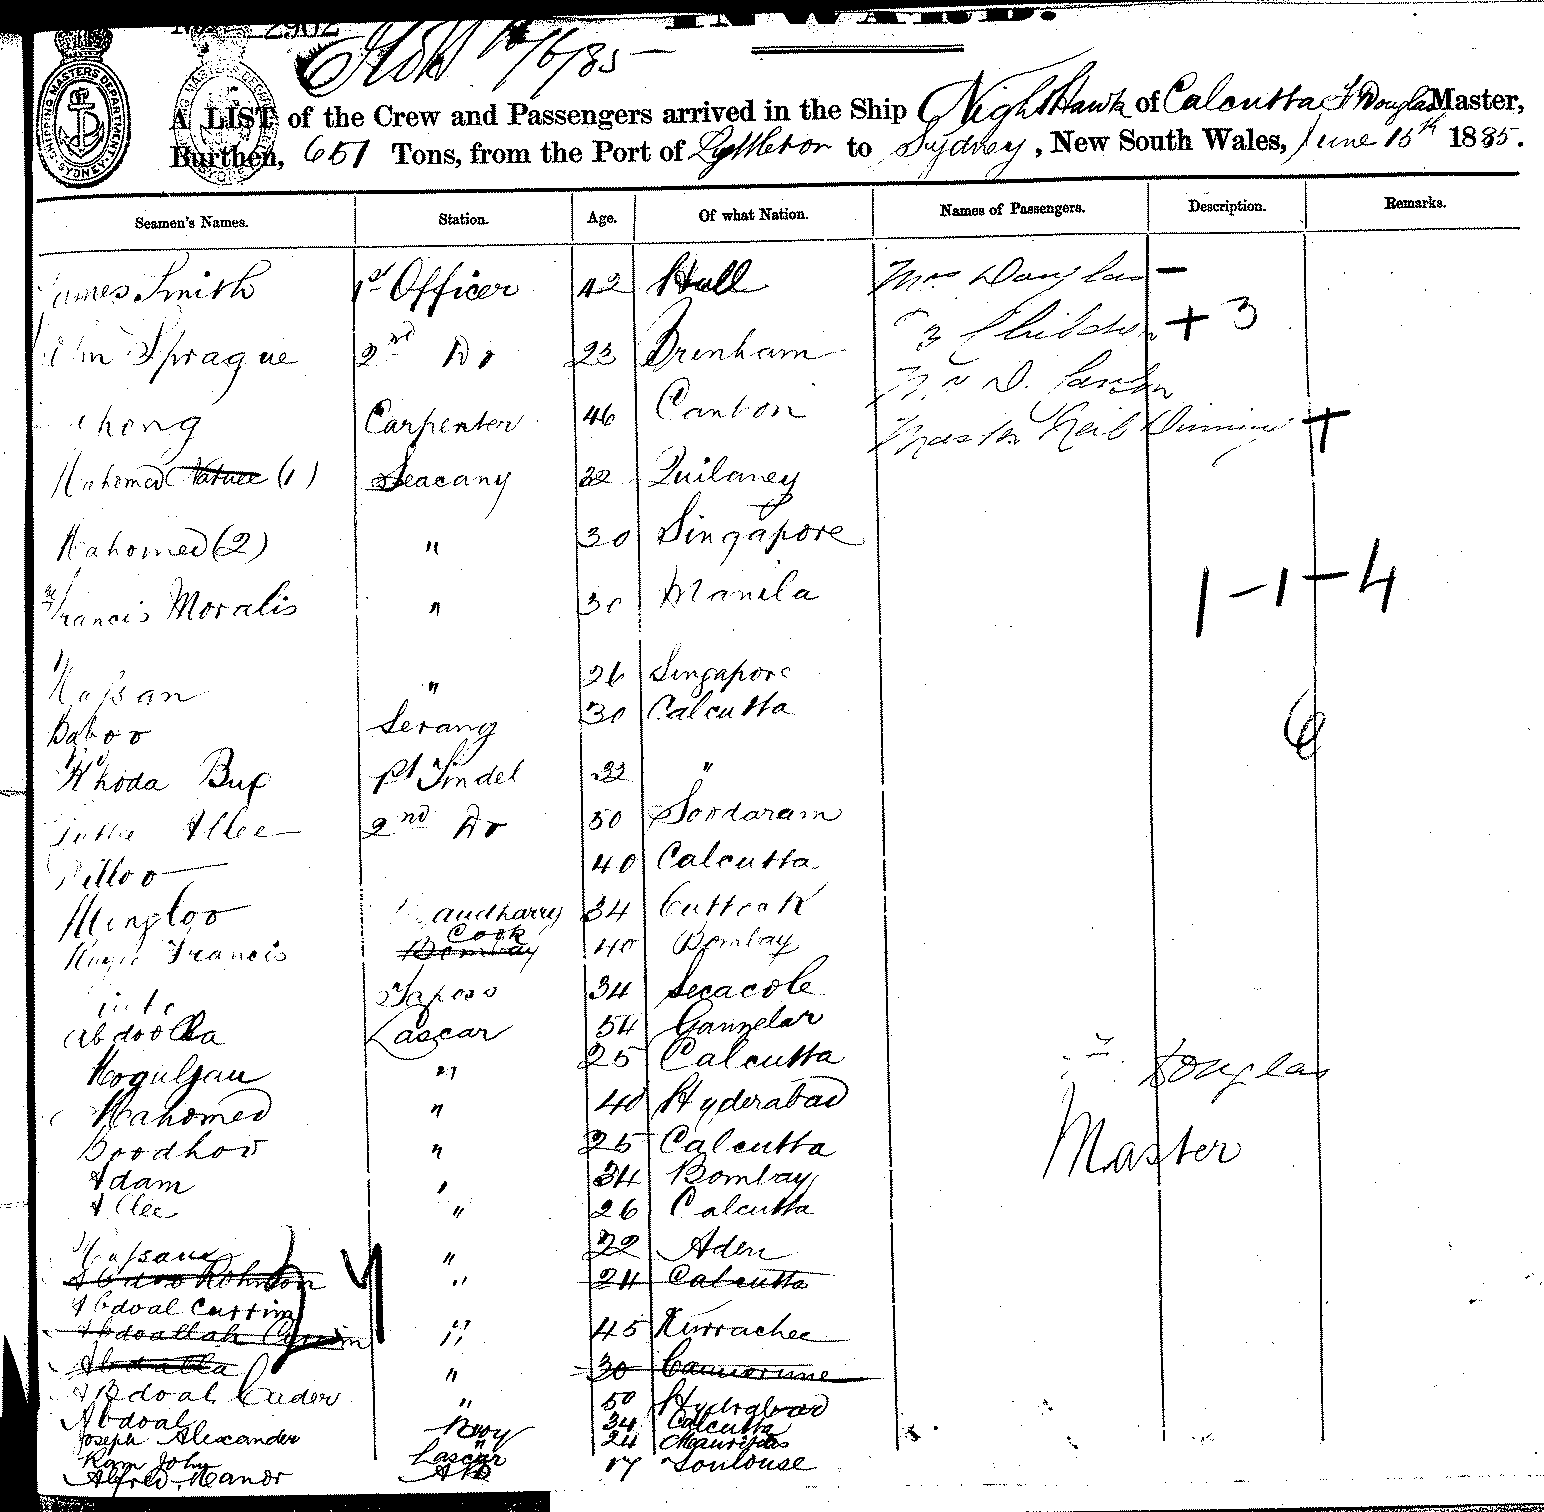 INWARD.
16/6/85
A LIST of the Crew and Passengers arrived in the Ship Night Hawk of Calcutta Douglas Master,
Burthen, 651 Tons, from the Port of Lyttleton to Sydney, New South Wales, June 15th 1885.
Seamen's Names. Station. Age. Of what Nation. Names of Passengers. Description. Remarks.
James Smith 1st Officer 42 Hull Mrs Douglas —
Sprague 2nd Do 23 Drenham 3 Children + 3
Carpenter 46 Canton
Mahomed (1) Seacany 32 Master Neil +
Mahomed (2) " 30 Singapore
Francis Moralis " 30 Manila
1 - 1 - 4
Hassan " 26 Singapore
Baboo Serang 30 Calcutta
6
Khoda Bux 1st Tindel 32 "
Allee 2nd Do 50 Soodaram
40 Calcutta
Mingloo 34 Cuttcak
Francis Cook Bombay 40 Bombay
34
Abdoola Lascar 54
Moguljau " 25 Calcutta
Douglas
Mahomed " 40 Hyderabad
Boodhoo " 25 Calcutta
Master
Adam " 34 Bombay
Allee " 26 Calcutta
Hassan " 22 Aden
" 24 Calcutta
Abdoal Currim
Abdoallah Currim " 45 Kurrachee
Abdalla " 30
Abdoal Cader " 50 Hydrabad
Abdoal 34 Calcutta
Joseph Alexander Boy 24 Mauritus
Ram John Lascar "
Alfred Manor AB 17 Toulouse